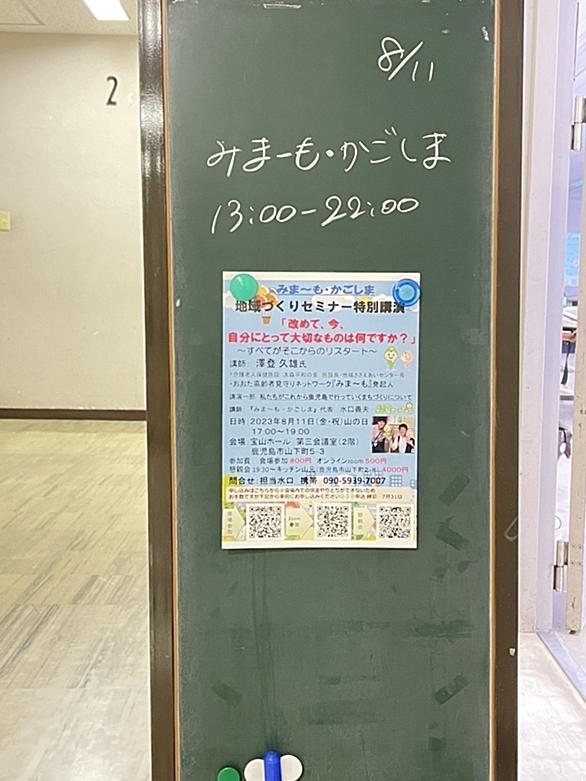 2
8/11
みまーも・かごしま
13:00-22:00
みま～も・かごしま
地域づくりセミナー特別講演
「改めて、今、
自分にとって大切なものは何ですか？」
～すべてがそこからのリスタート～
講師: 澤登 久雄氏
・おおた高齢者見守りネットワーク『みま～も』発起人
講演一部 私たちがこれから鹿児島で行っていくまちづくりについて
講師:『みま～も・かごしま』代表 水口義夫
日時:2023年8月11日(金・祝)山の日
17:00～19:00
会場:宝山ホール 第三会議室(2階)
鹿児島市山下町5-3
参加費 会場参加 800円 オンラインzoom 500円
懇親会 19:30～キッチン山元(鹿児島市山下町2-8) 4000円
問合せ 担当水口 携帯 090-5939-7007
会場参加
Zoom参加
懇親会